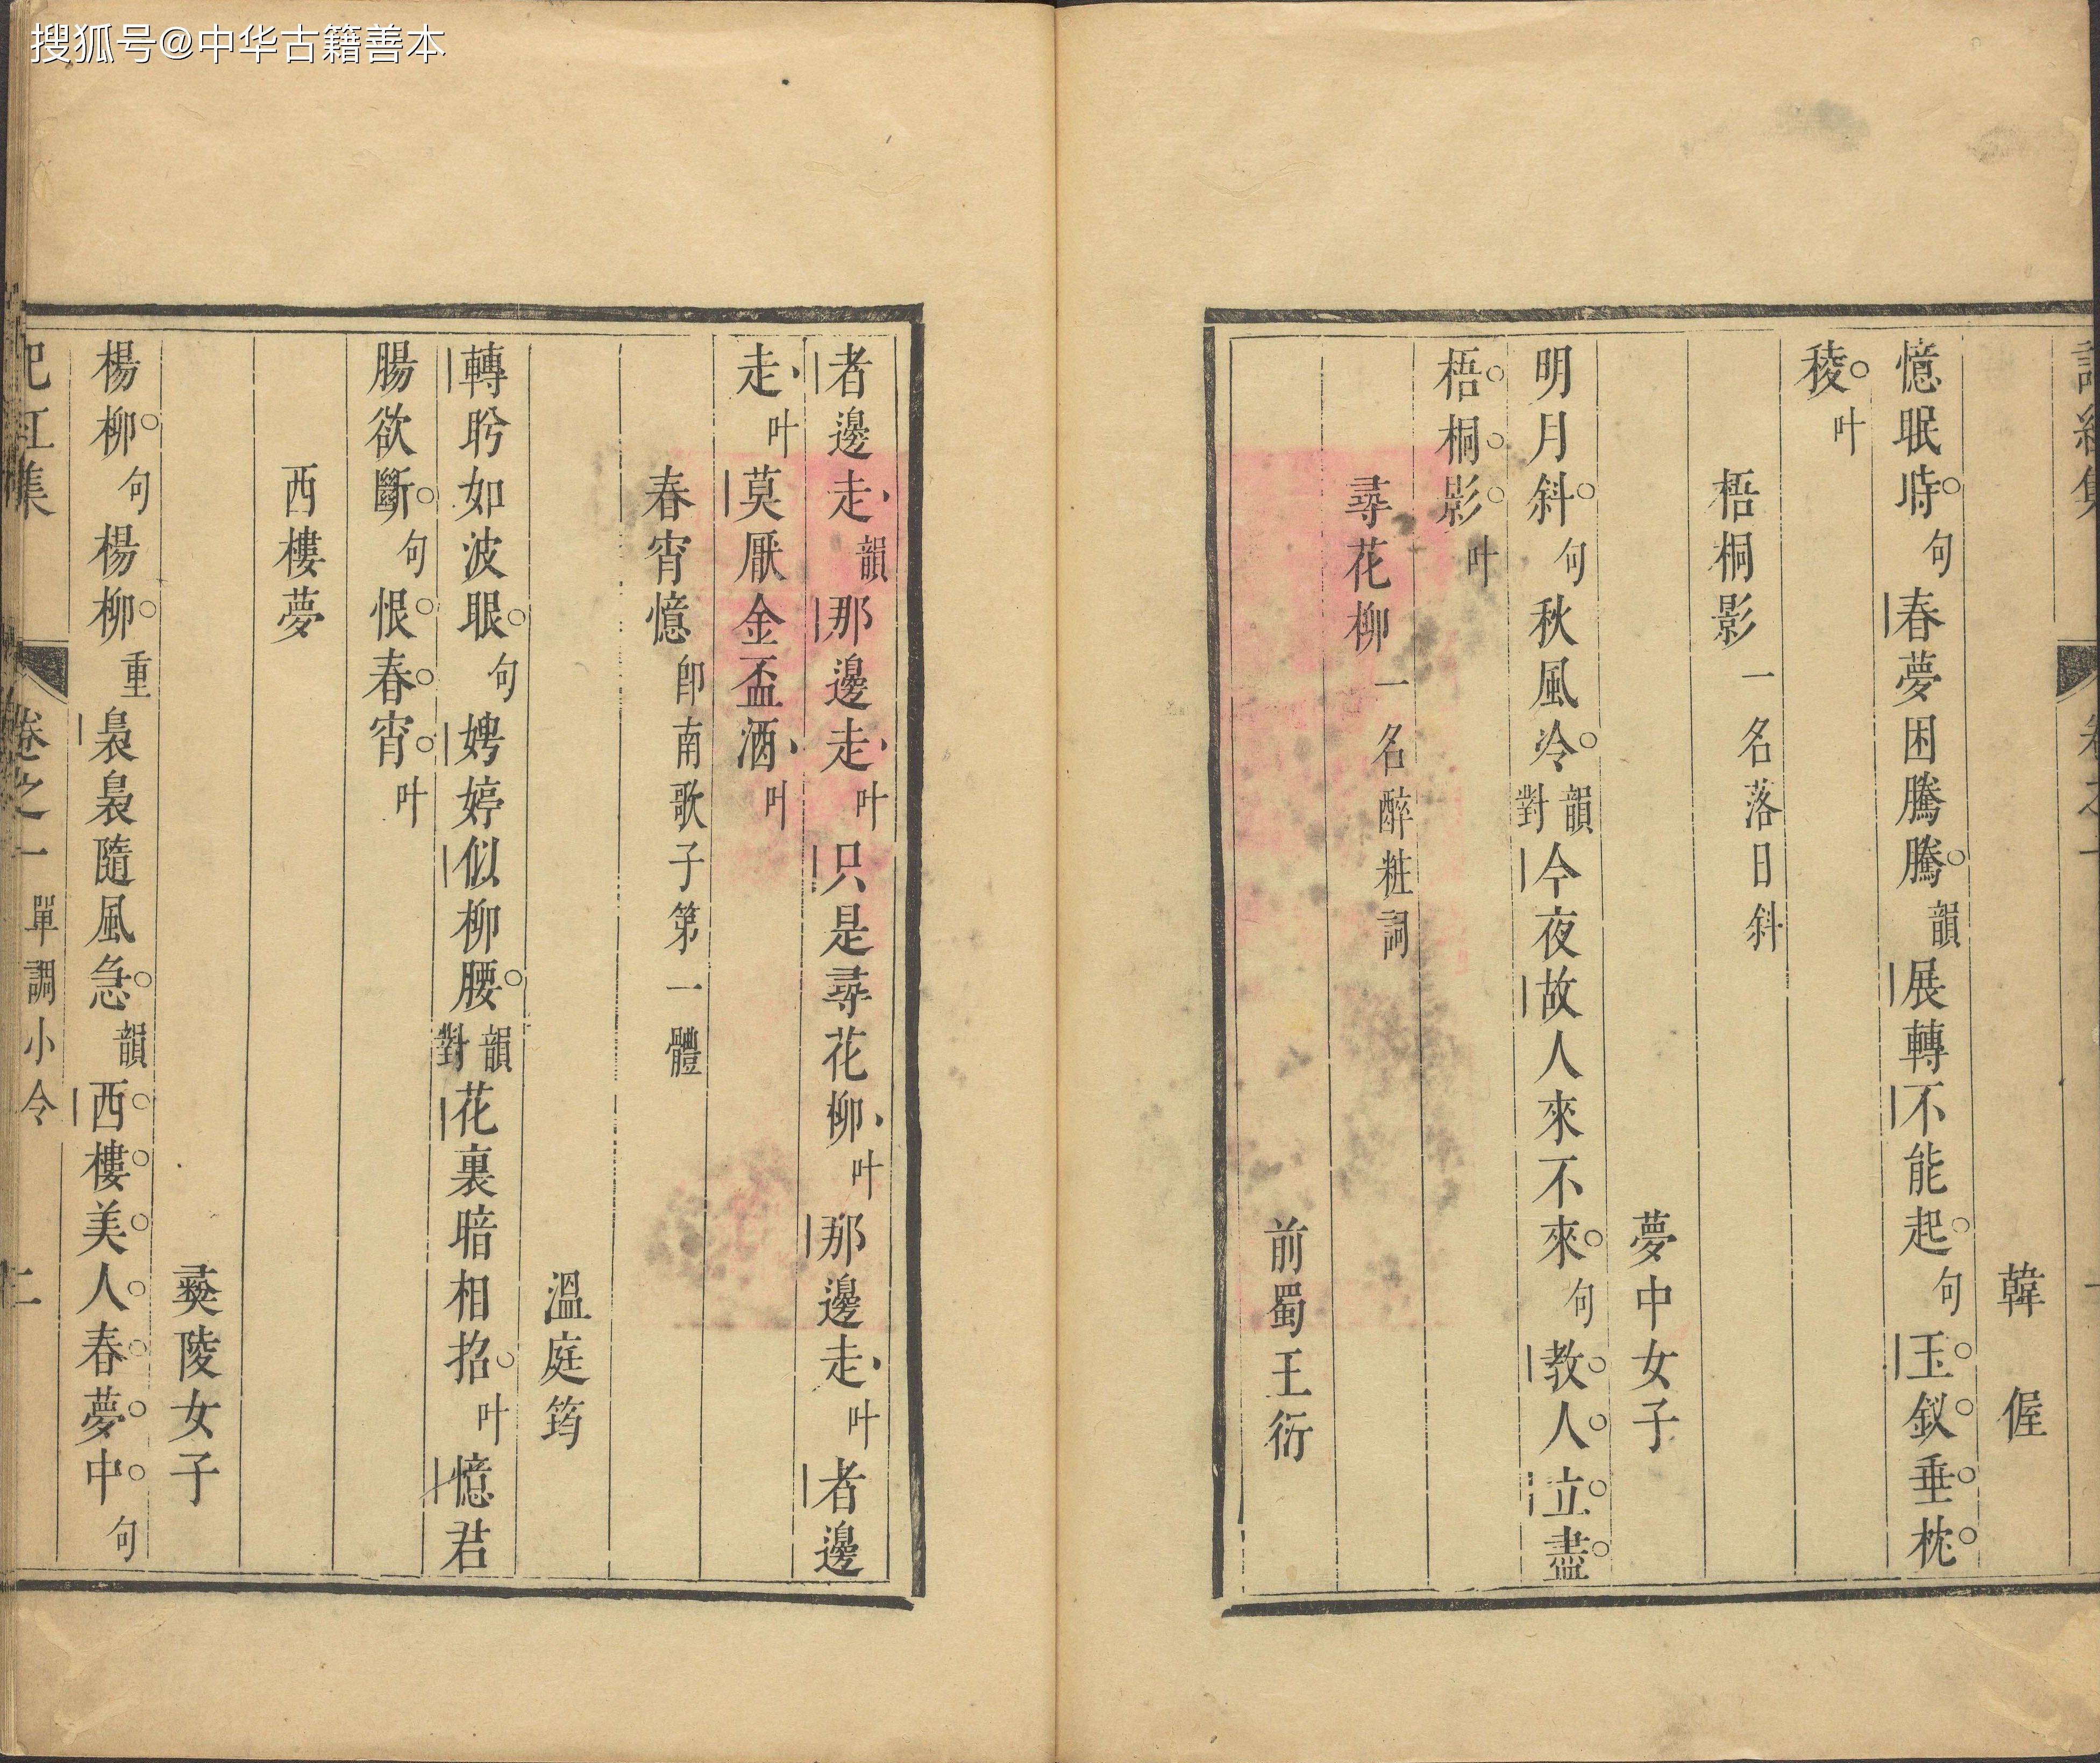 搜狐号@中华古籍善本
韓偓
憶眠時句春夢困騰騰韻展轉不能起句玉釵垂枕
稜叶
梧桐影一名落日斜
夢中女子
明月斜句秋風冷韻對今夜故人來不來句教人立盡
梧桐影叶
尋花柳一名醉粧詞
前蜀王衍
者邊走韻那邊走叶只是尋花柳叶那邊走叶者邊
走叶莫厭金盃酒叶
春宵憶即南歌子第一體
溫庭筠
轉盻如波眼句娉婷似柳腰韻對花裏暗相招叶憶君
腸欲斷句恨春宵叶
西樓夢
彝陵女子
楊柳句楊柳重裊裊隨風急韻西樓美人春夢中句
記紅集 卷之一 單調小令 二